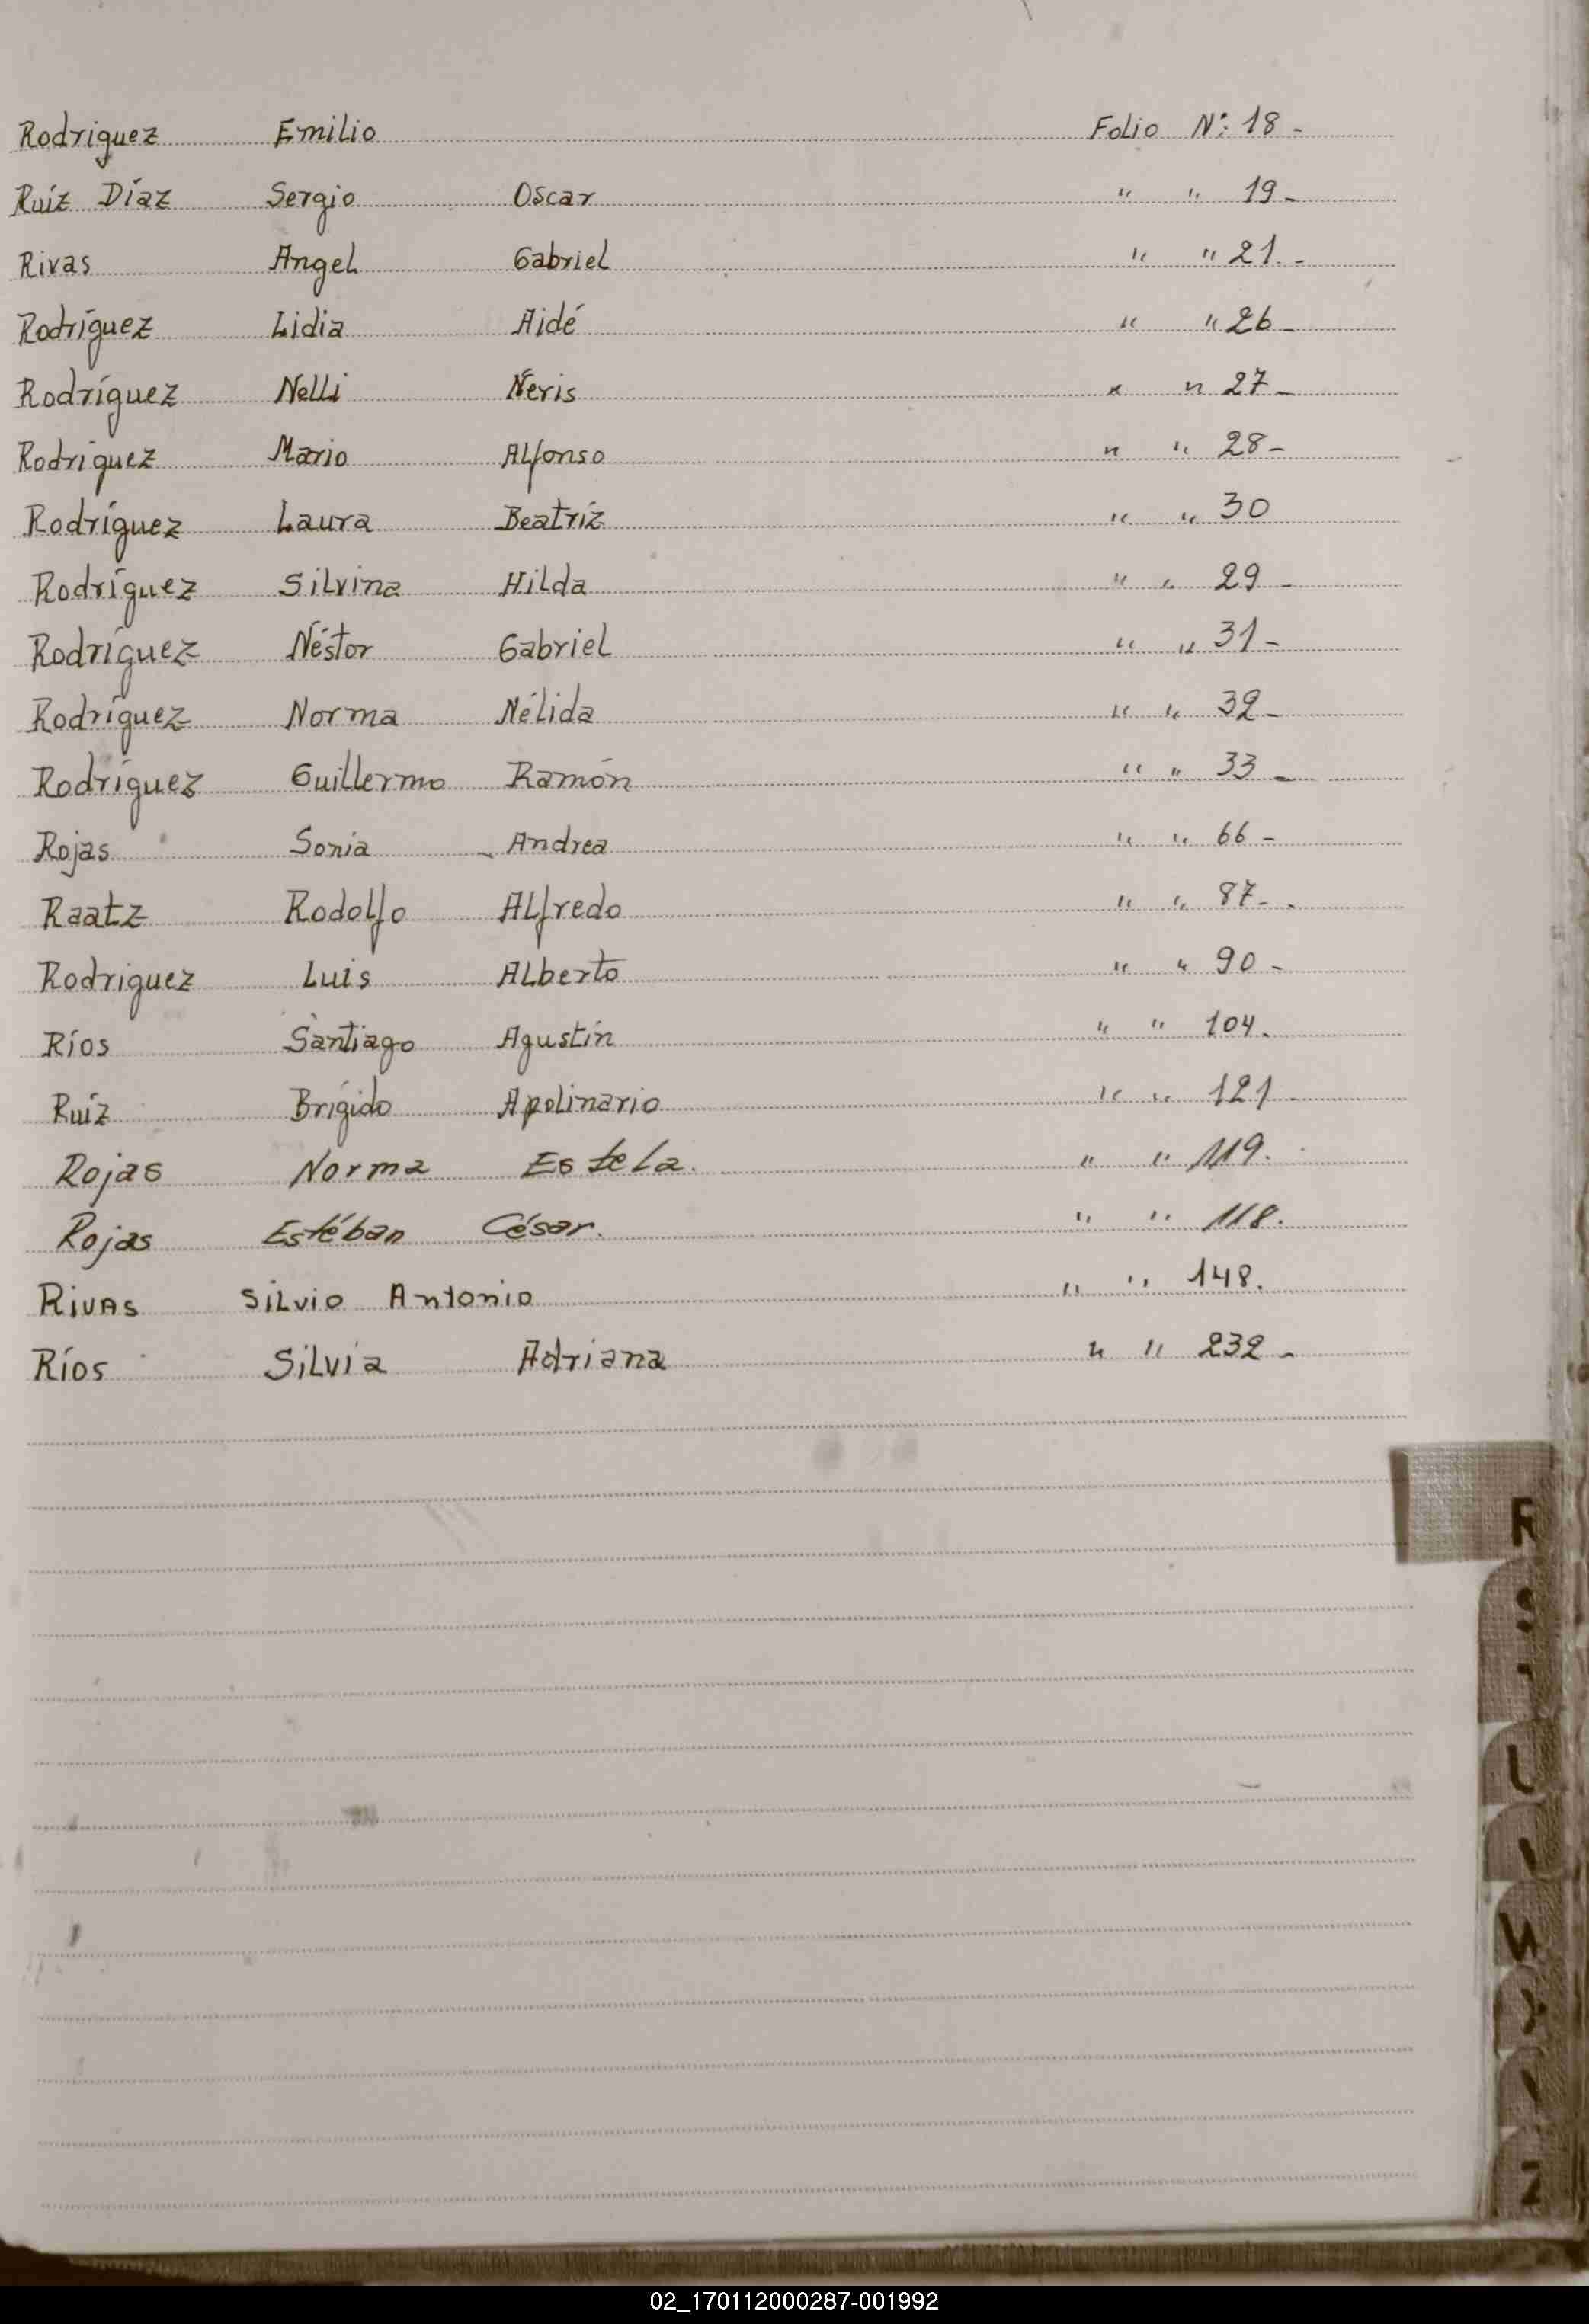 Rodriguez Emilio Folio Nº: 18 -
Ruíz Díaz Sergio Oscar " " 19 -
Rivas Angel Gabriel " " 21. -
Rodríguez Lidia Aidé " " 26 -
Rodríguez Nelli Neris " " 27 -
Rodriguez Mario Alfonso " " 28 -
Rodríguez Laura Beatríz " " 30
Rodríguez Silvina Hilda " " 29 -
Rodríguez Néstor Gabriel " " 31 -
Rodríguez Norma Nélida " " 32 -
Rodríguez Guillermo Ramón " " 33 -
Rojas Sonia - Andrea " " 66 -
Raatz Rodolfo Alfredo " " 87 - .
Rodriguez Luis Alberto " " 90 -
Ríos Santiago Agustín " " 104.
Ruíz Brígido Apolinario " " 121 -
Rojas Norma Estela. " " 119.
Rojas Estéban César. " " 118.
Rivas Silvio Antonio " " 148.
Ríos Silvia Adriana " " 232 -
R
S
Z
02_170112000287-001992